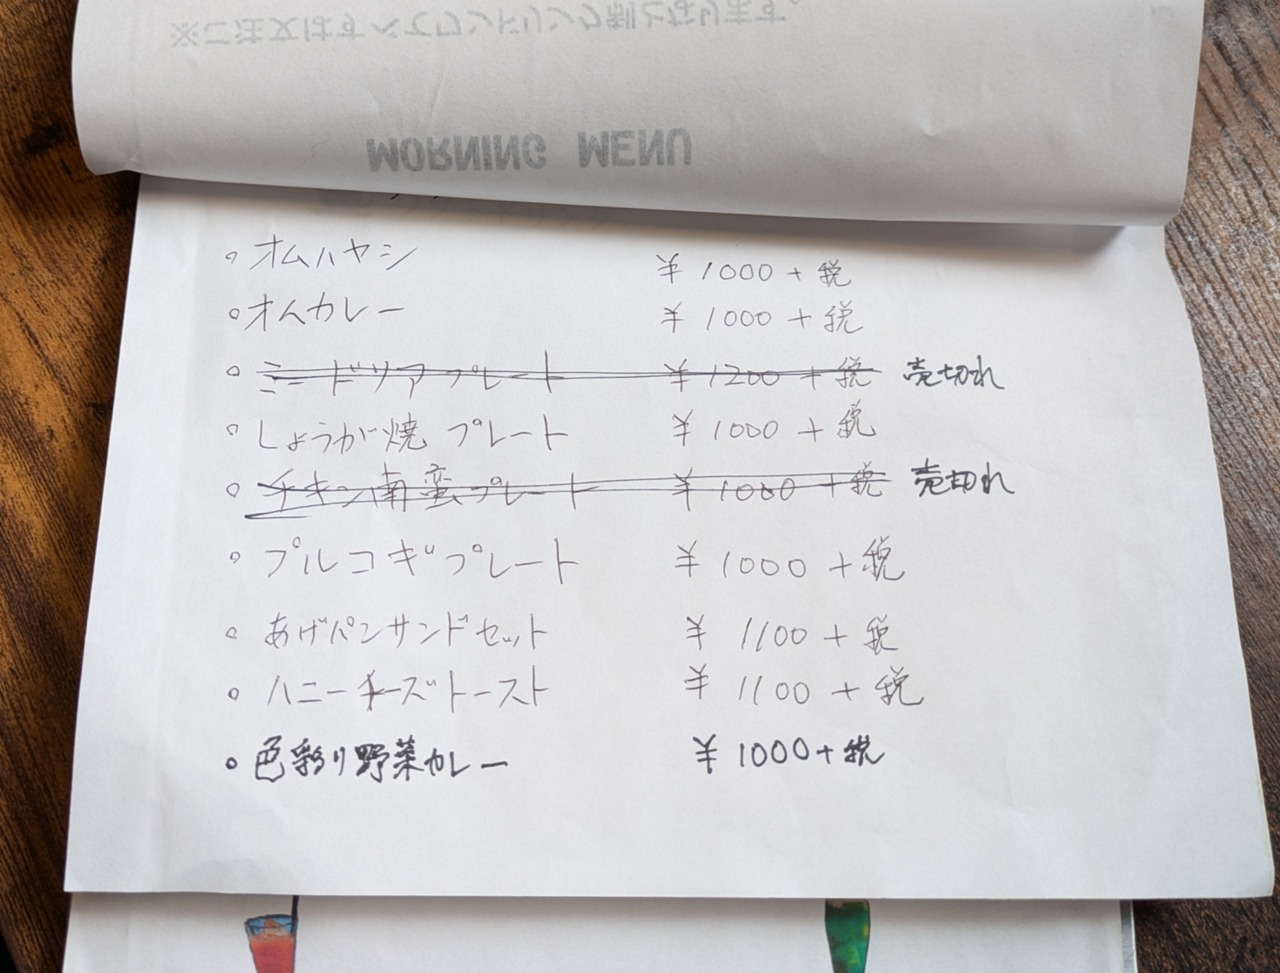 ※ご注文はすべてワンドリンク制となります。
MORNING MENU
。オムハヤシ ¥1000+税
。オムカレー ¥1000+税
。ミードリアプレート ¥1200+税 売切れ
。しょうが焼プレート ¥1000+税
。チキン南蛮プレート ¥1000+税 売切れ
。プルコギプレート ¥1000+税
。あげパンサンドセット ¥1100+税
。ハニーチーズトースト ¥1100+税
。色彩り野菜カレー ¥1000+税